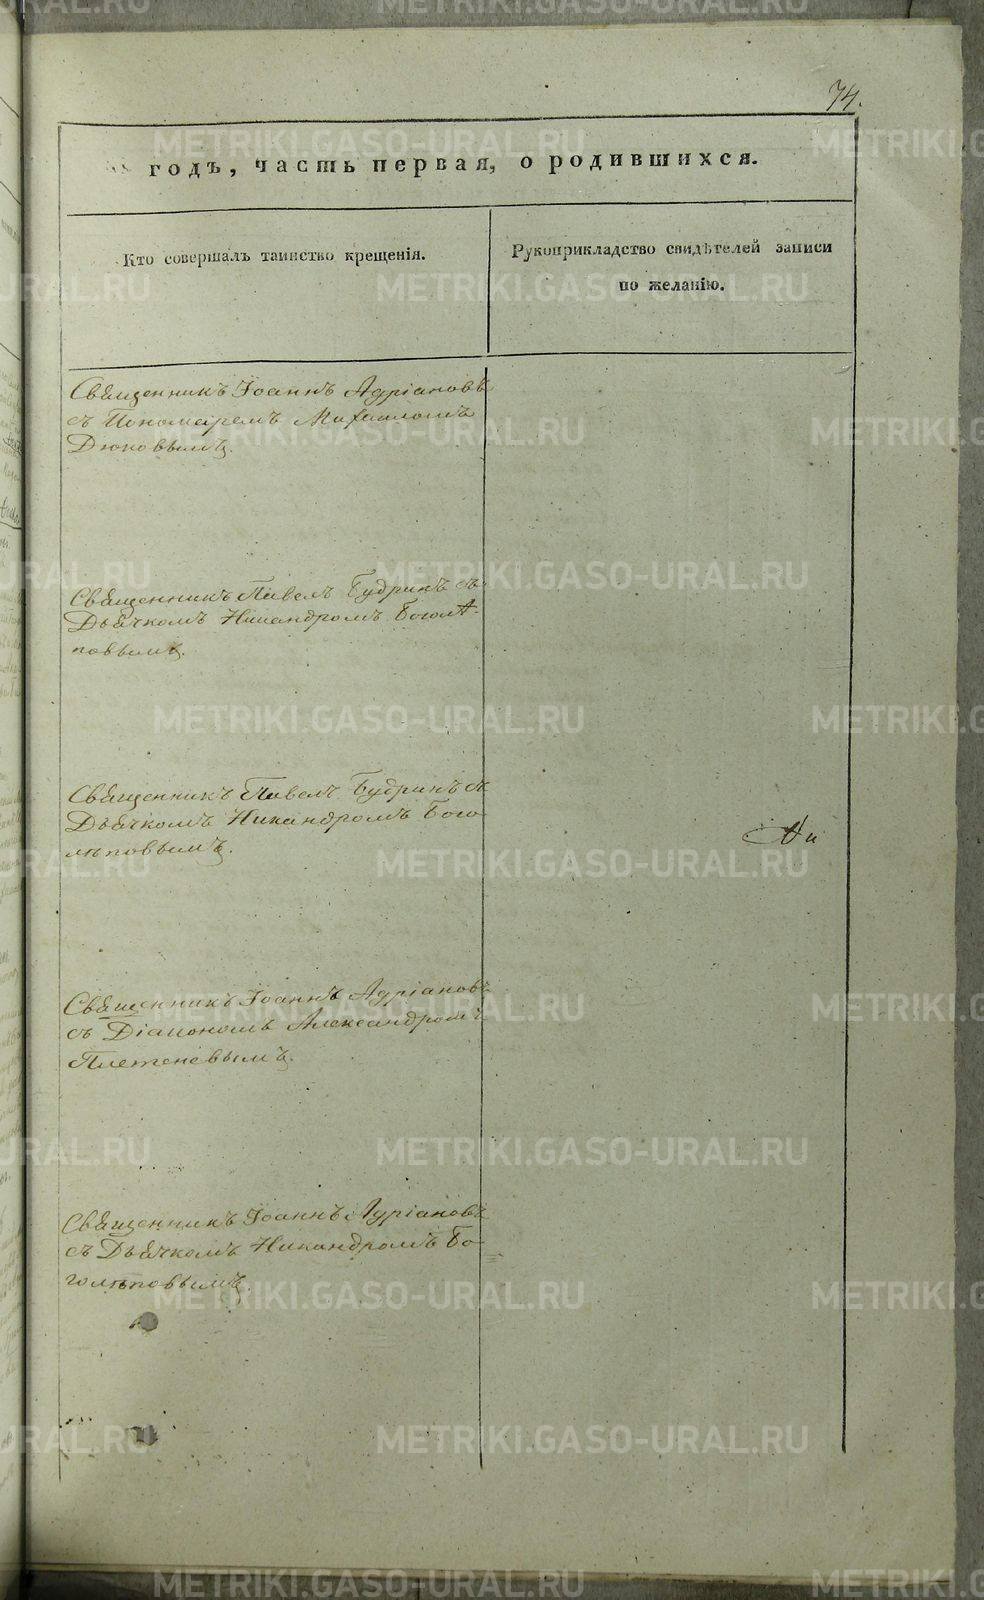 74.
годъ, часть первая, о родившихся.
Кто совершалъ таинство крещенія.
Рукоприкладство свидѣтелей записи
по желанію.
Священникъ Іоаннъ Адріановъ
съ Пономаремъ Михаиломъ
Дюковымъ.
Священникъ Павелъ Будринъ съ
Дьячкомъ Никандромъ Боголѣ-
повымъ.
Священникъ Павелъ Будринъ съ
Дьячкомъ Никандромъ Бого-
лѣповымъ.
Священникъ Іоаннъ Адріановъ
съ Діакономъ Александромъ
Плетеневымъ.
Священникъ Іоаннъ Адріановъ
съ Дьячкомъ Никандромъ Бо-
голѣповымъ.
METRIKI.GASO-URAL.RU